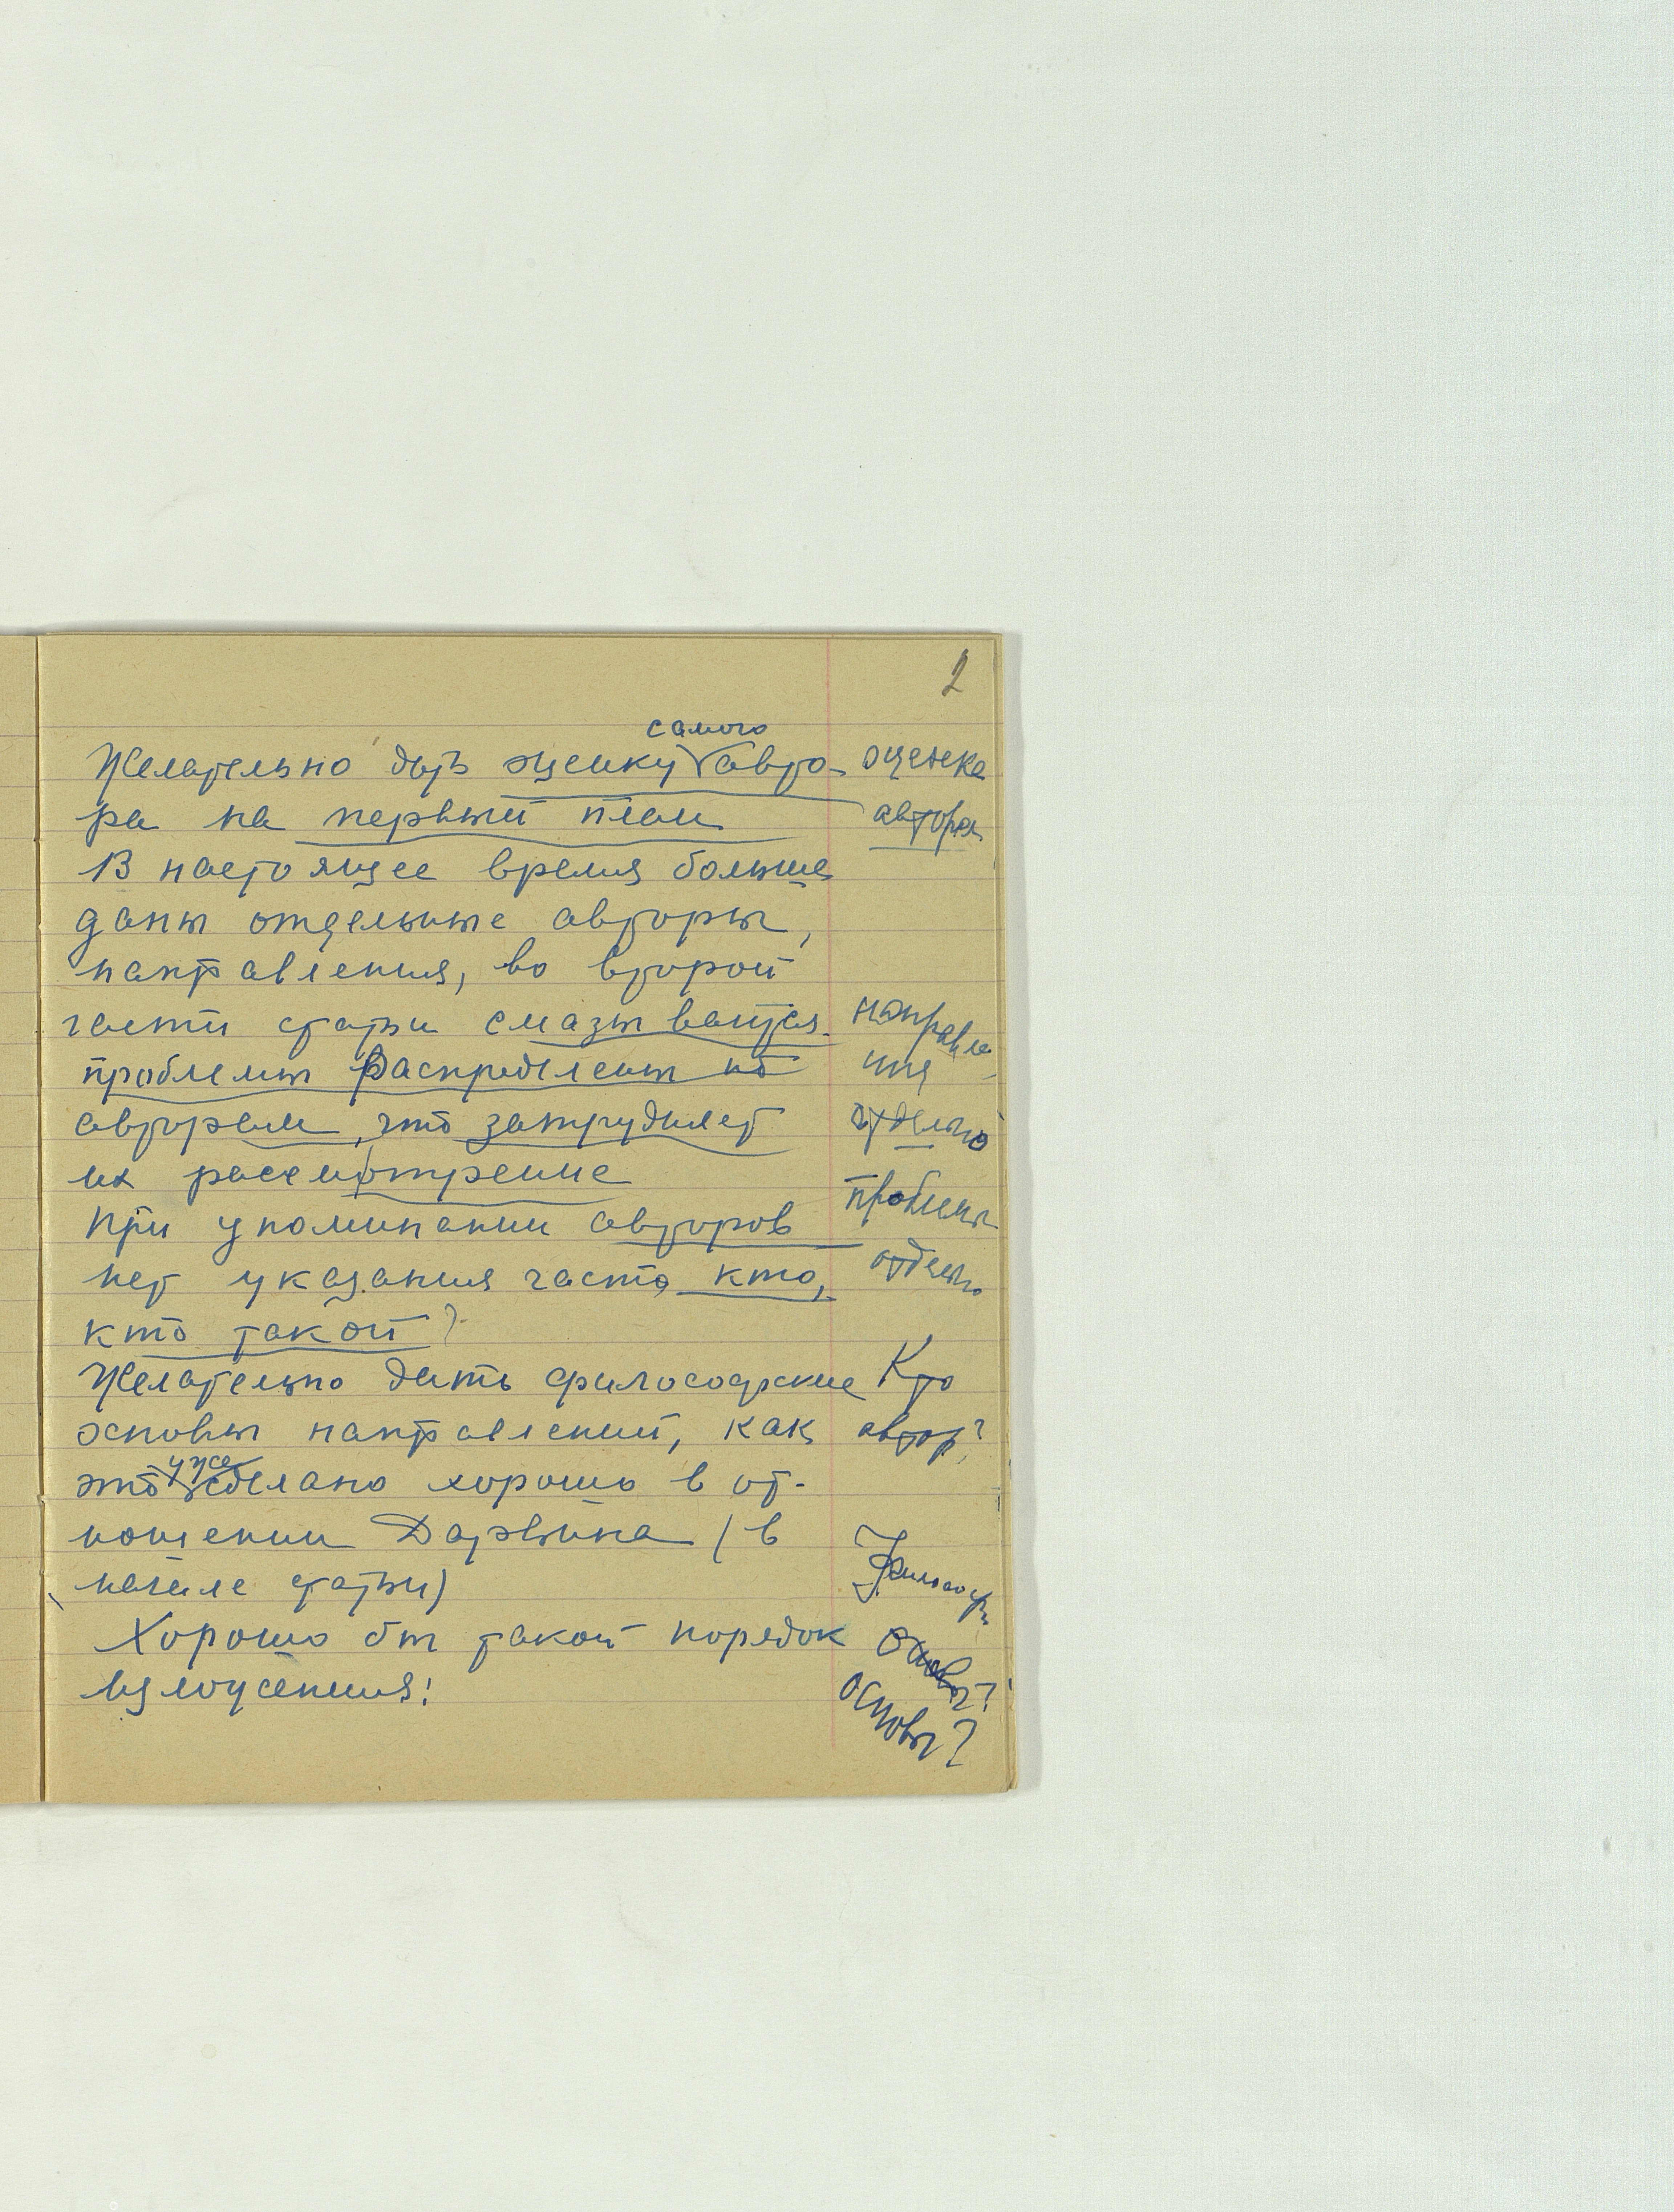 2
самого
Желательно дать оценку авто-
ра на первый план
В настоящее время больше
даны отдельные авторы,
направления, во второй
части статьи смазываются
проблемы распределены по
авторам, что затрудняет
их рассмотрение
При упоминании авторов
нет указания часто, кто,
кто такой?
Желательно дать философские
основы направлений, как
это уже сделано хорошо в от-
ношении Дарвина (в
начале статьи)
Хорошо бы такой порядок
изложения:
оценка
автора
направле
ния
отдельно
проблемы
отдельно
Кто
автор?
Философ.
основы?
основы?